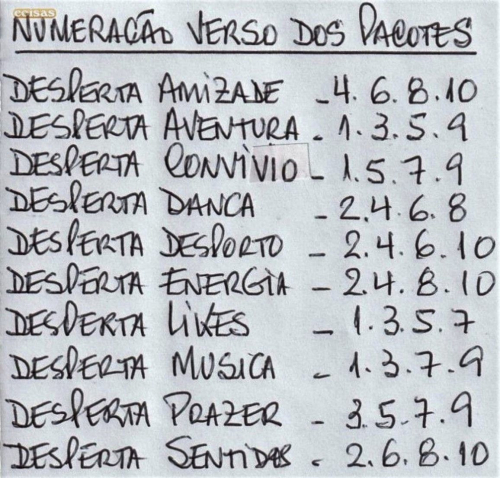 coisas
NUMERAÇÃO VERSO DOS PACOTES
DESPERTA AMIZADE - 4. 6. 8. 10
DESPERTA AVENTURA - 1. 3. 5. 9
DESPERTA CONVÍVIO - 1. 5. 7. 9
DESPERTA DANCA - 2. 4. 6. 8
DESPERTA DESPORTO - 2. 4. 6. 10
DESPERTA ENERGIA - 2. 4. 8. 10
DESPERTA LIKES - 1. 3. 5. 7
DESPERTA MUSICA - 1. 3. 7. 9
DESPERTA PRAZER - 3. 5. 7. 9
DESPERTA SENTIDOS - 2. 6. 8. 10